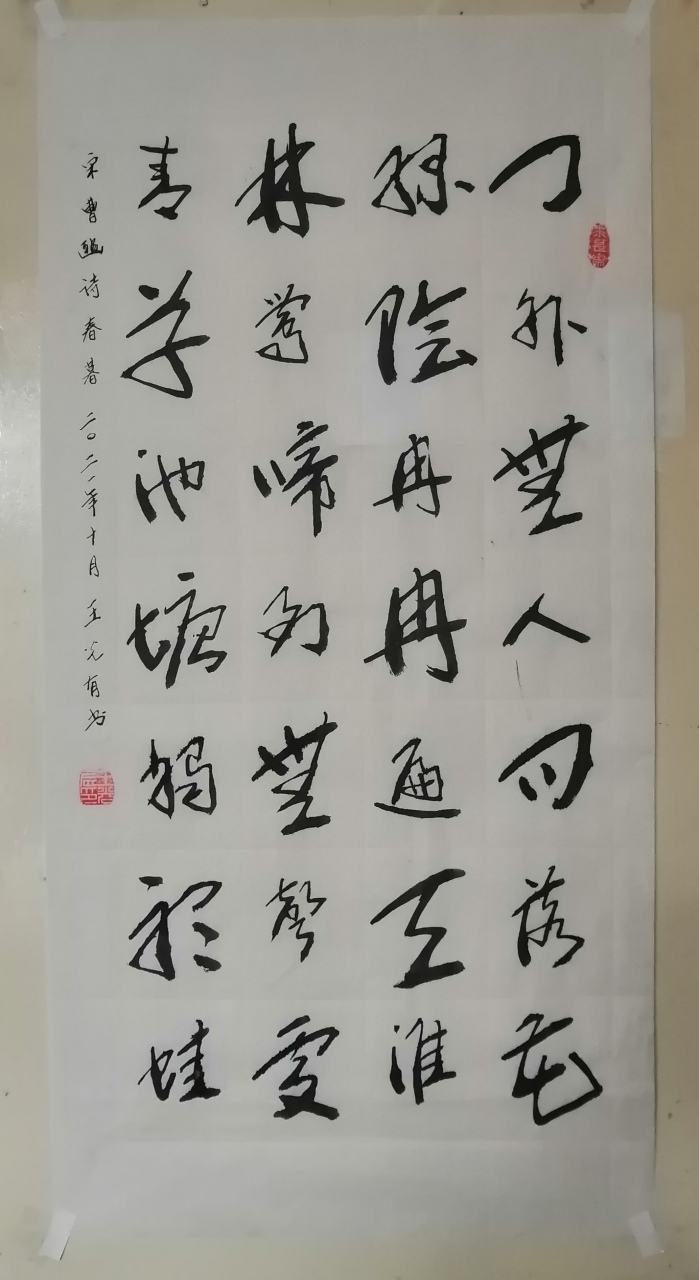 门外無人问落花
緑陰冉冉遍天涯
林莺啼到無聲處
青草池塘獨聽蛙
宋曹豳诗春暮 二〇二一年十月 王光有书